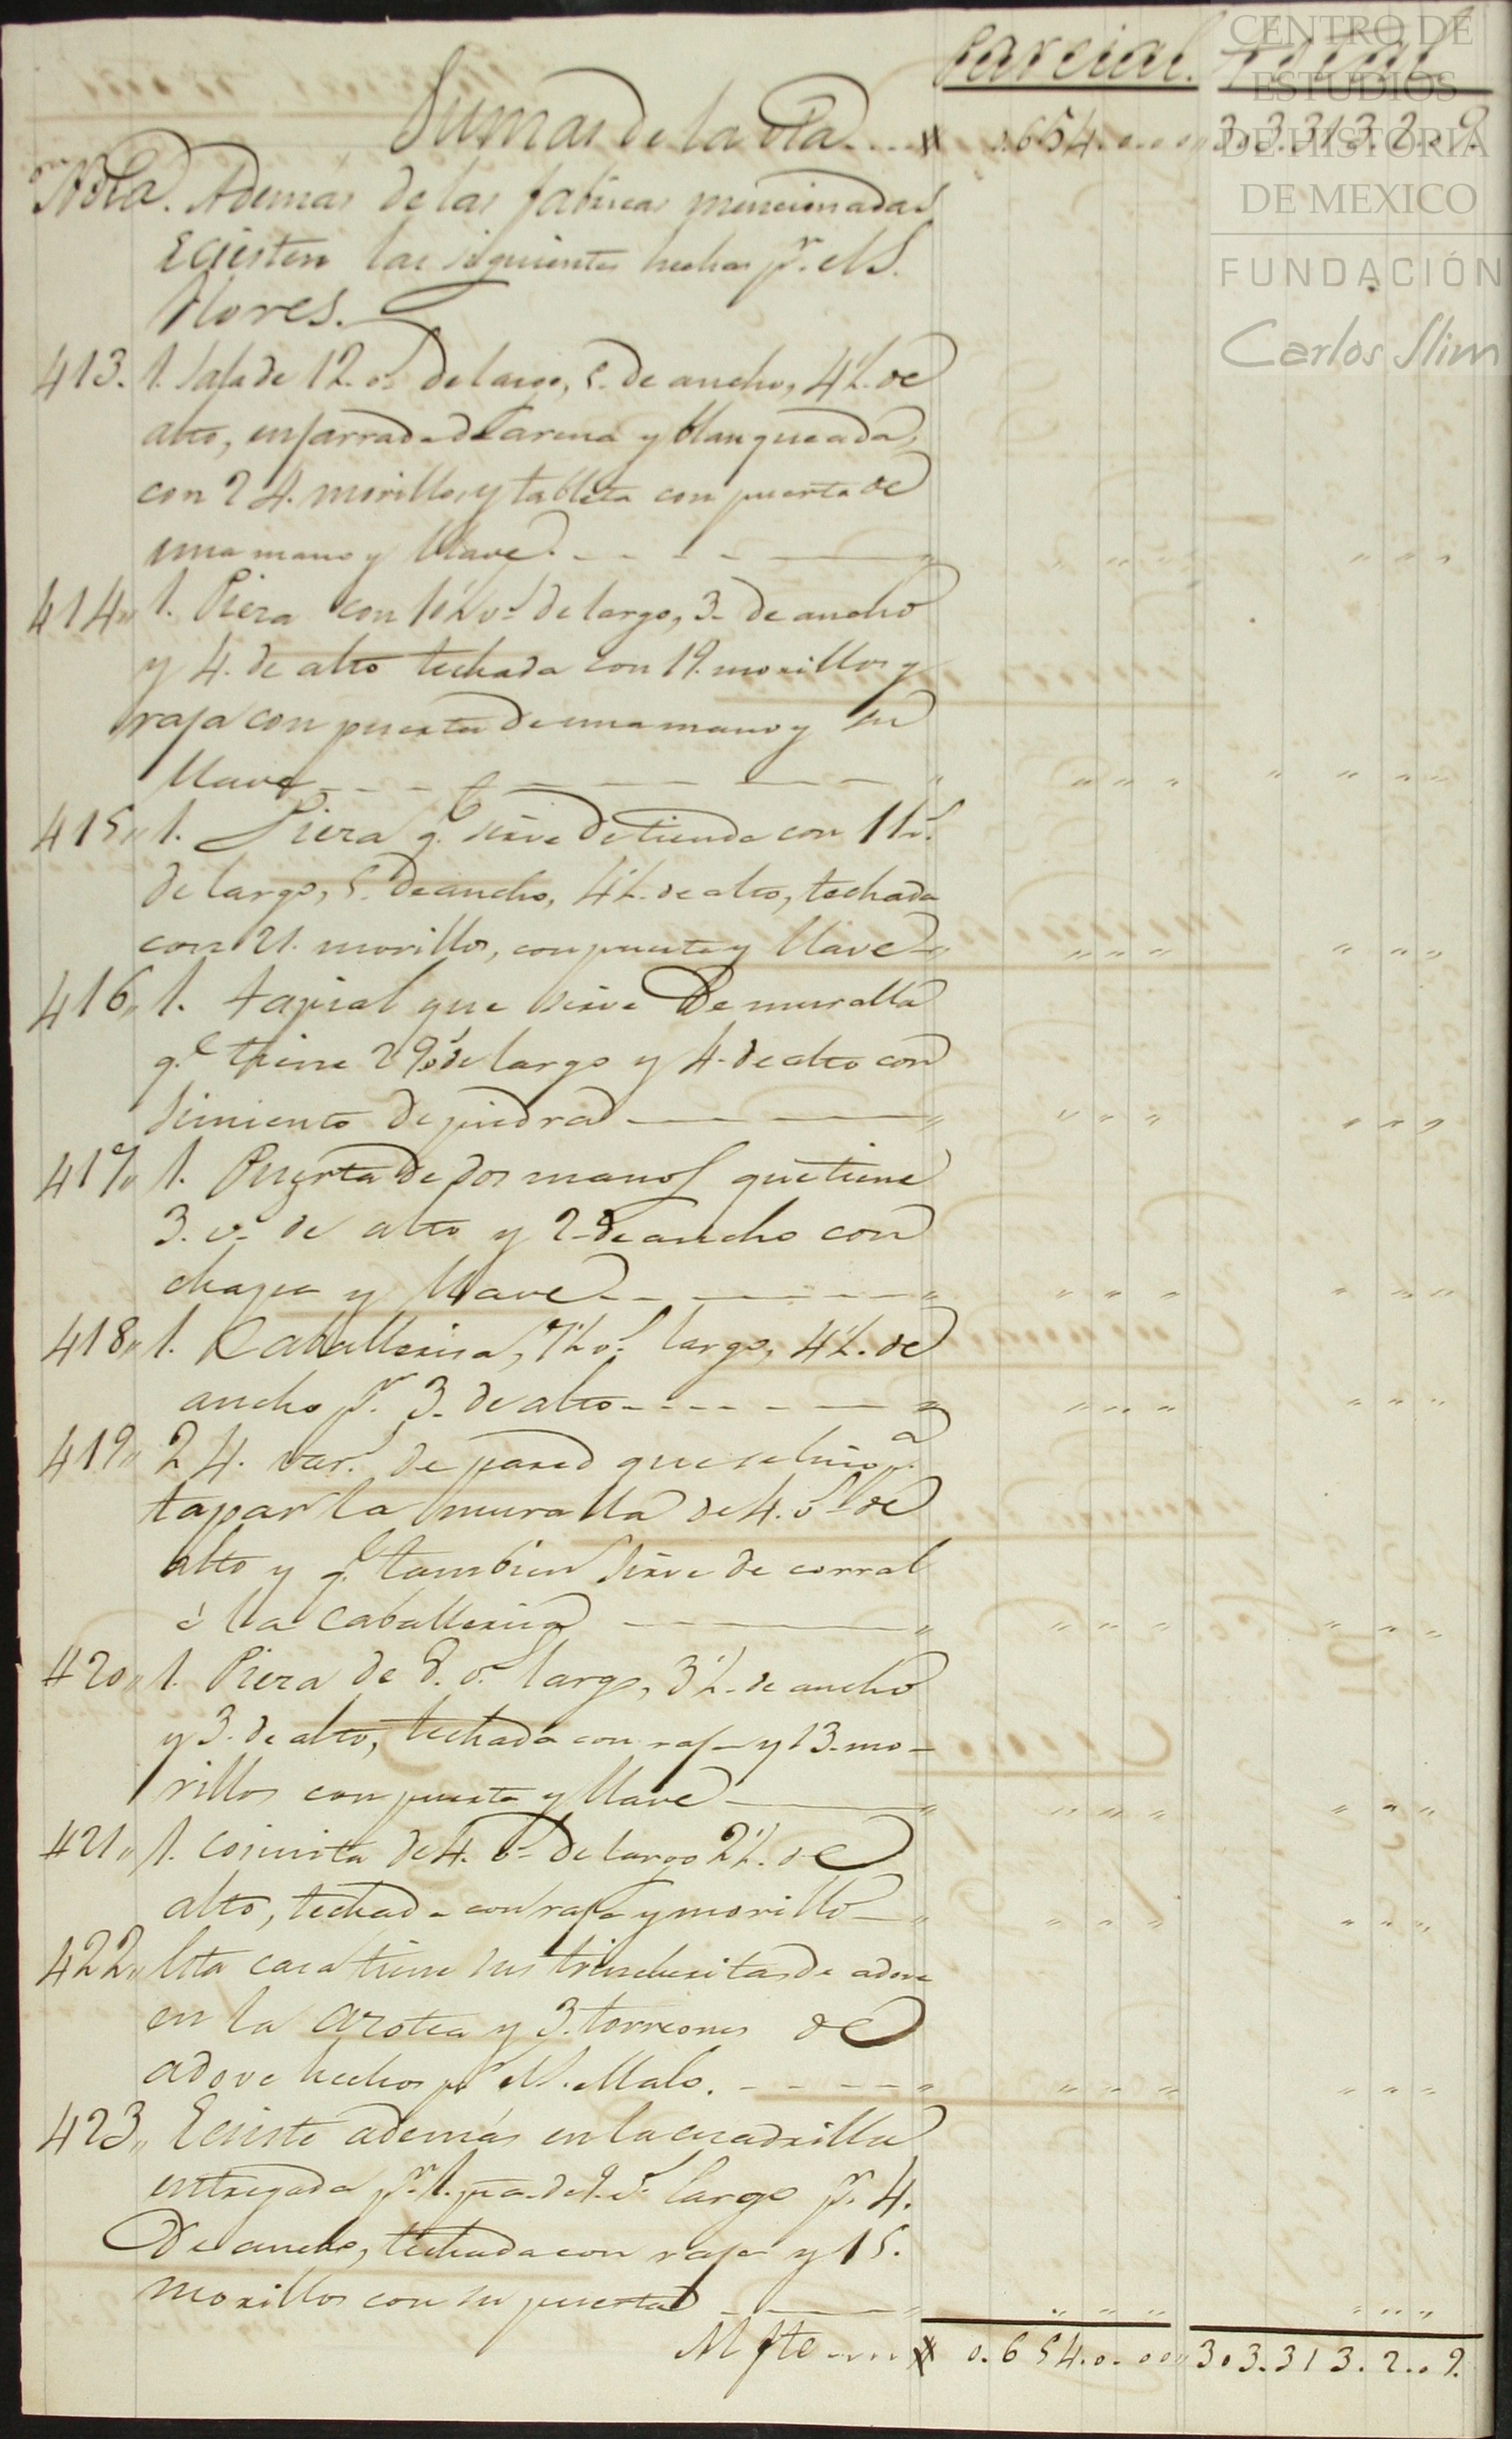 Parcial. Total
Sumas de la vta. .... $ 0.654.0.00 303.313.2.09.
Nota. Ademas de las fabricas mencionadas
Ecsisten las siguientes hechas pr. el S.
Flores.
413. 1. Sala de 12. vs. de largo, 5. de ancho, 4½. de
alto, enjarrada de arena y blanqueada,
con 24. morillos y tableta con puerta de
una mano y llave. " " " " " " "
414" 1. Pieza con 10½ vs. de largo, 3. de ancho
y 4. de alto techada con 19. morillos y
raja con puerta de una mano y su
llave " " " " " " " "
415" 1. Pieza qe. sirve de tienda con 11 vs.
de largo, 5. de ancho, 4½. de alto, techada
con 21. morillos, con puerta y llave " " " " " " "
416" 1. tapial que sirve de muralla
qe. tiene 29 vs. de largo y 4. de alto con
simiento de piedra " " " " " " "
417" 1. Puerta de dos manos que tiene
3. vs. de alto y 2. de ancho con
chapa y llave " " " " " " "
418" 1. Caballerisa, 7½ vs. largo, 4½. de
ancho pr. 3. de alto " " " " " " "
419" 24. vars. de pared que se hizo pa.
tapar la muralla de 4. vs. de
alto y qe. tambien sirve de corral
á la caballerisa " " " " " " "
420" 1. Pieza de 8. vs. largo, 3½. de ancho
y 3. de alto, techada con raja y 13. mo-
rillos con puerta y llave " " " " " " "
421" 1. cosinita de 4. vs. de largo 2½. de
alto, techada con raja y morillo " " " " " " "
422" Esta casa tiene sus trincheritas de adove
en la azotea y 3. torreones de
adove hechos pr. el S. Malo. " " " " " " "
423" Ecsiste además en la cuadrilla
entregada pr. 1. pza. de 9. vs. largo pr. 4.
de ancho, techada con raja y 15.
morillos con su puerta " " " " " " "
Al fte .... $ 0.654.0.00" 303.313.2.09.
CENTRO DE
ESTUDIOS
DE HISTORIA
DE MEXICO
FUNDACIÓN
Carlos Slim